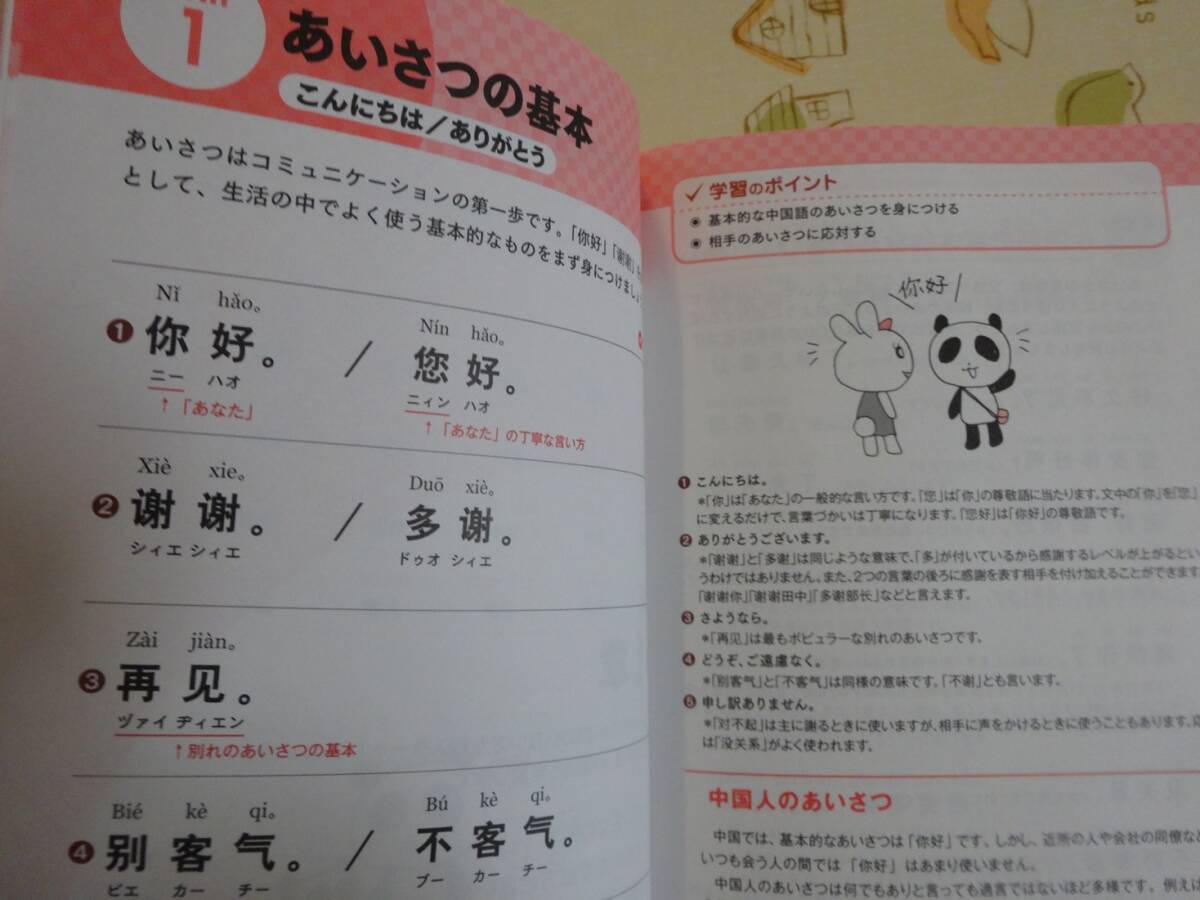 1
あいさつの基本
こんにちは／ありがとう
あいさつはコミュニケーションの第一歩です。「你好」「谢谢」
として、生活の中でよく使う基本的なものをまず身につけましょ
Nǐ hǎo。 Nín hǎo。
❶ 你好。 / 您好。
ニー ハオ ニィン ハオ
↑「あなた」 ↑「あなた」の丁寧な言い方
Xiè xie。 Duō xiè。
❷ 谢谢。 / 多谢。
シィエ シィエ ドゥオ シィエ
Zài jiàn。
❸ 再见。
ヅァイ ヂィエン
↑別れのあいさつの基本
Bié kè qi。 Bú kè qi。
❹ 别客气。 / 不客气。
ビエ カー チー ブー カー チー
学習のポイント
◉ 基本的な中国語のあいさつを身につける
◉ 相手のあいさつに応対する
你好
❶ こんにちは。
*「你」は「あなた」の一般的な言い方です。「您」は「你」の尊敬語に当たります。文中の「你」を「您」
に変えるだけで、言葉づかいは丁寧になります。「您好」は「你好」の尊敬語です。
❷ ありがとうございます。
*「谢谢」と「多谢」は同じような意味で、「多」が付いているから感謝するレベルが上がるとい
うわけではありません。また、2つの言葉の後ろに感謝を表す相手を付け加えることができます
「谢谢你」「谢谢田中」「多谢部长」などと言えます。
❸ さようなら。
*「再见」は最もポピュラーな別れのあいさつです。
❹ どうぞ、ご遠慮なく。
*「别客气」と「不客气」は同様の意味です。「不谢」とも言います。
❺ 申し訳ありません。
*「对不起」は主に謝るときに使いますが、相手に声をかけるときに使うこともあります。応
は「没关系」がよく使われます。
中国人のあいさつ
中国では、基本的なあいさつは「你好」です。しかし、近所の人や会社の同僚など
いつも会う人の間では「你好」はあまり使いません。
中国人のあいさつは何でもありと言っても過言ではないほど多様です。例えば